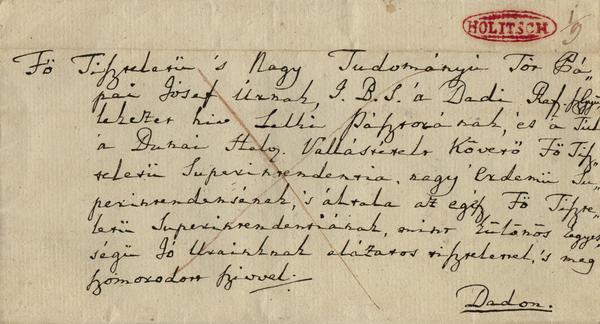 HOLITSCH
1/9
Fő Tiszteletü 's Nagy Tudományú Tór Pá„
pai Jósef Úrnak, I. B. S. 'a Dadi Ref. Gyü„
lekezet hiv Lelki Pásztorának, és a Túl
a Dunai Helv. Vallástételt Követő Fő Tisz„
teletü Superintendentia, nagy Érdemü Su„
perintendensének, 's általa az egész Fő Tiszte„
letü Superintendentiának, mint különös Kegyes„
ségü Jó Urainknak alázatos tisztelettel, 's meg
szomorodott szivvel.
Dadon.